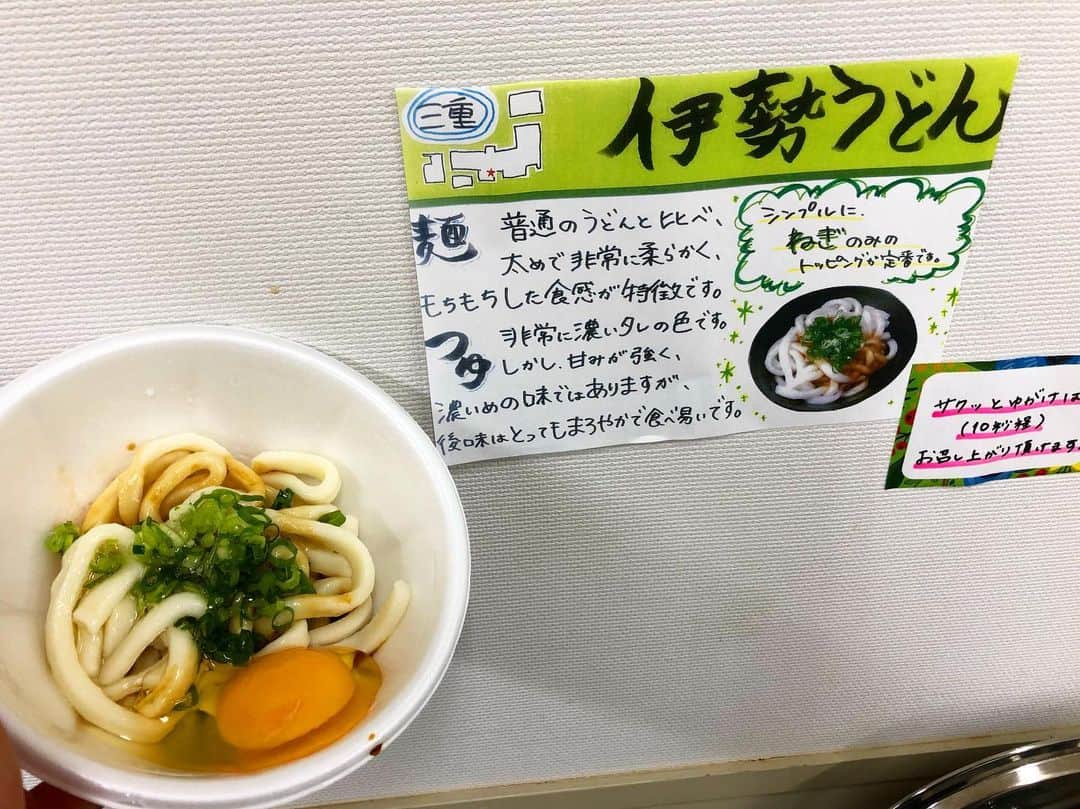 三重
伊勢うどん
麺
普通のうどんと比べ、
太めで非常に柔らかく、
もちもちした食感が特徴です。
つゆ
非常に濃いタレの色です。
しかし、甘みが強く、
濃いめの味ではありますが、
後味はとってもまろやかで食べ易いです。
シンプルに、
ねぎのみの
トッピングが定番です。
サクッとゆがけば
(10秒程)
お召し上がり頂けます